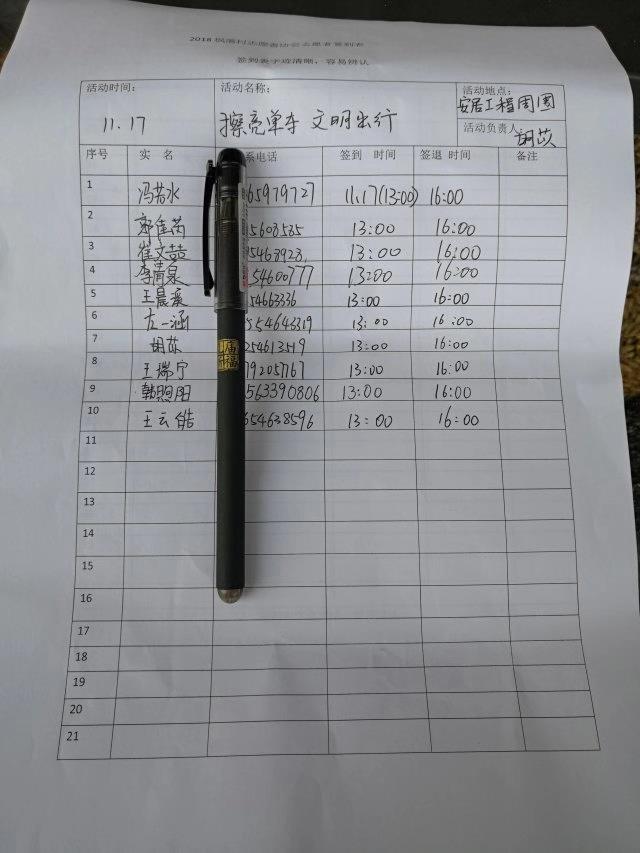 签到表字迹清晰，容易辨认
活动时间： 活动名称： 活动地点：
11.17 擦亮单车 文明出行 安居工程周围
活动负责人 胡苡
序号 实 名 系电话 签到 时间 签退 时间 备注
1 冯若水 65979727 11.17(13:00) 16:00
2 5608535 13:00 16:00
3 崔文喆 5468928 13:00 16:00
4 李清泉 54600777 13:00 16:00
5 王晨溪 54663336 13:00 16:00
6 左一涵 554643319 13:00 16:00
7 胡苡 254613519 13:00 16:00
8 王瑞宁 792057767 13:00 16:00
9 韩煦阳 563390806 13:00 16:00
10 王云皓 654638596 13:00 16:00
11
12
13
14
15
16
17
18
19
20
21
庙
福